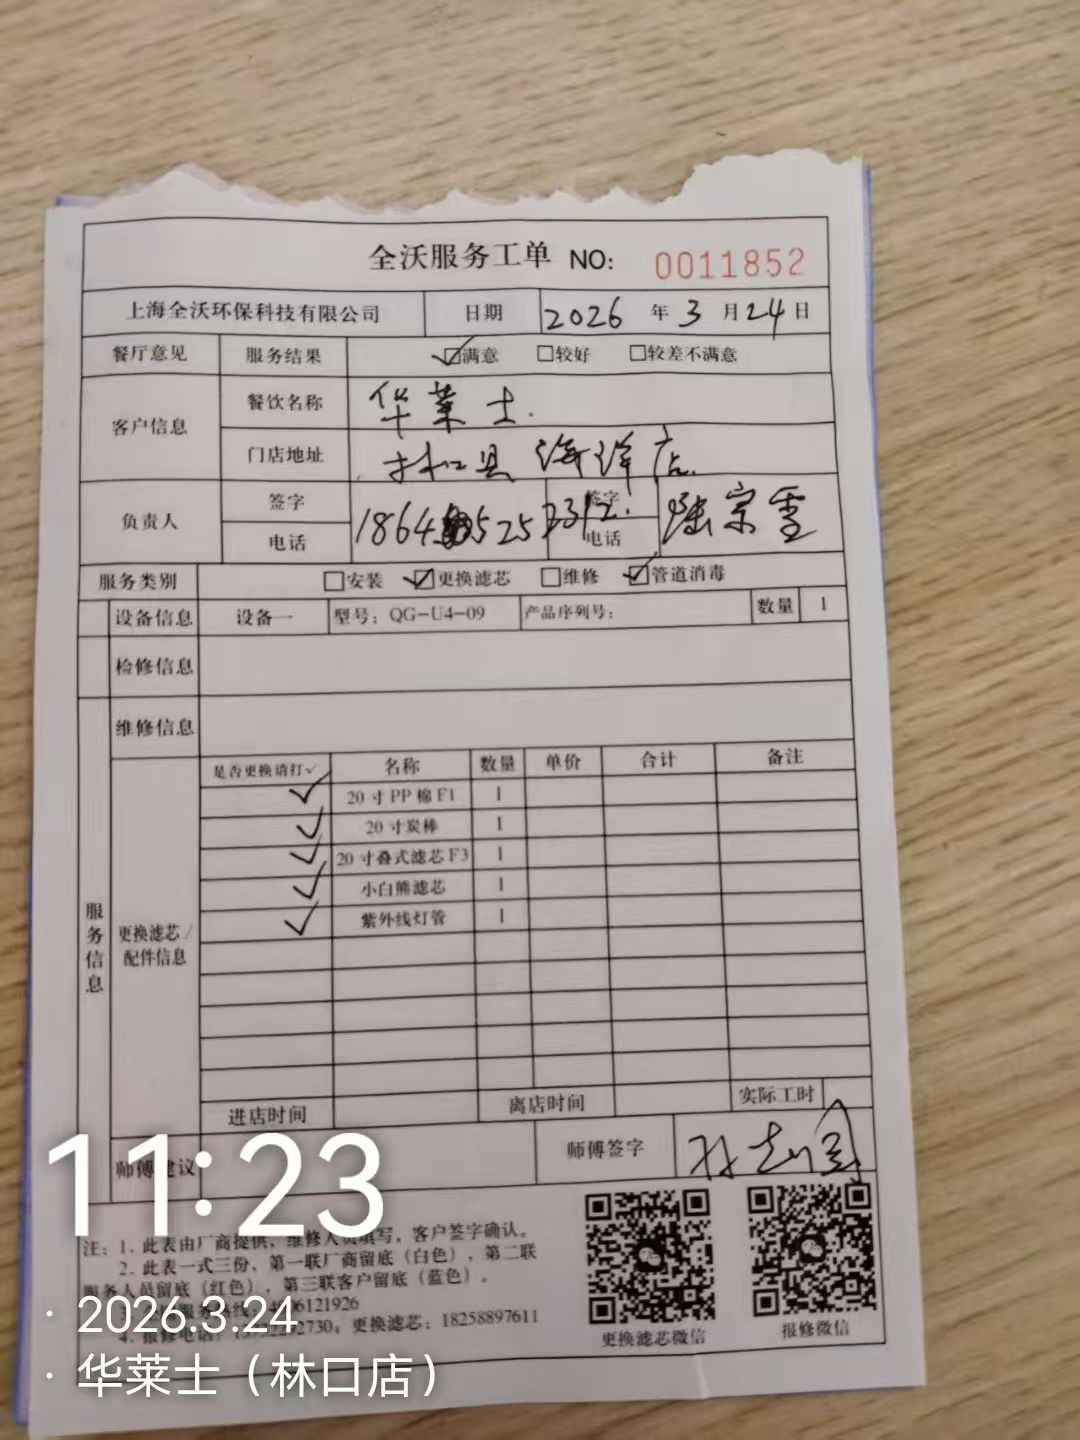 全沃服务工单 NO: 0011852
上海全沃环保科技有限公司 日期 2026 年 3 月 24 日
餐厅意见 服务结果 ☑满意 ☐较好 ☐较差不满意
客户信息 餐饮名称 华莱士.
门店地址 林口县 海洋店.
负责人 签字 签字
电话 电话
服务类别 ☐安装 ☑更换滤芯 ☐维修 ☑管道消毒
设备信息 设备一 型号：QG-U4-09 产品序列号： 数量 1
检修信息
维修信息
服务信息
更换滤芯/配件信息
是否更换请打√ 名称 数量 单价 合计 备注
✓ 20 寸 PP 棉 F1 1
✓ 20 寸炭棒 1
✓ 20 寸叠式滤芯 F3 1
✓ 小白熊滤芯 1
✓ 紫外线灯管 1
进店时间 离店时间 实际工时
师傅建议 师傅签字
注：1. 此表由厂商提供，维修人员填写，客户签字确认。
2. 此表一式三份，第一联厂商留底（白色），第二联
服务人员留底（红色），第三联客户留底（蓝色）。
更换滤芯：18258897611
更换滤芯微信 报修微信
11:23
· 2026.3.24
· 华莱士（林口店）